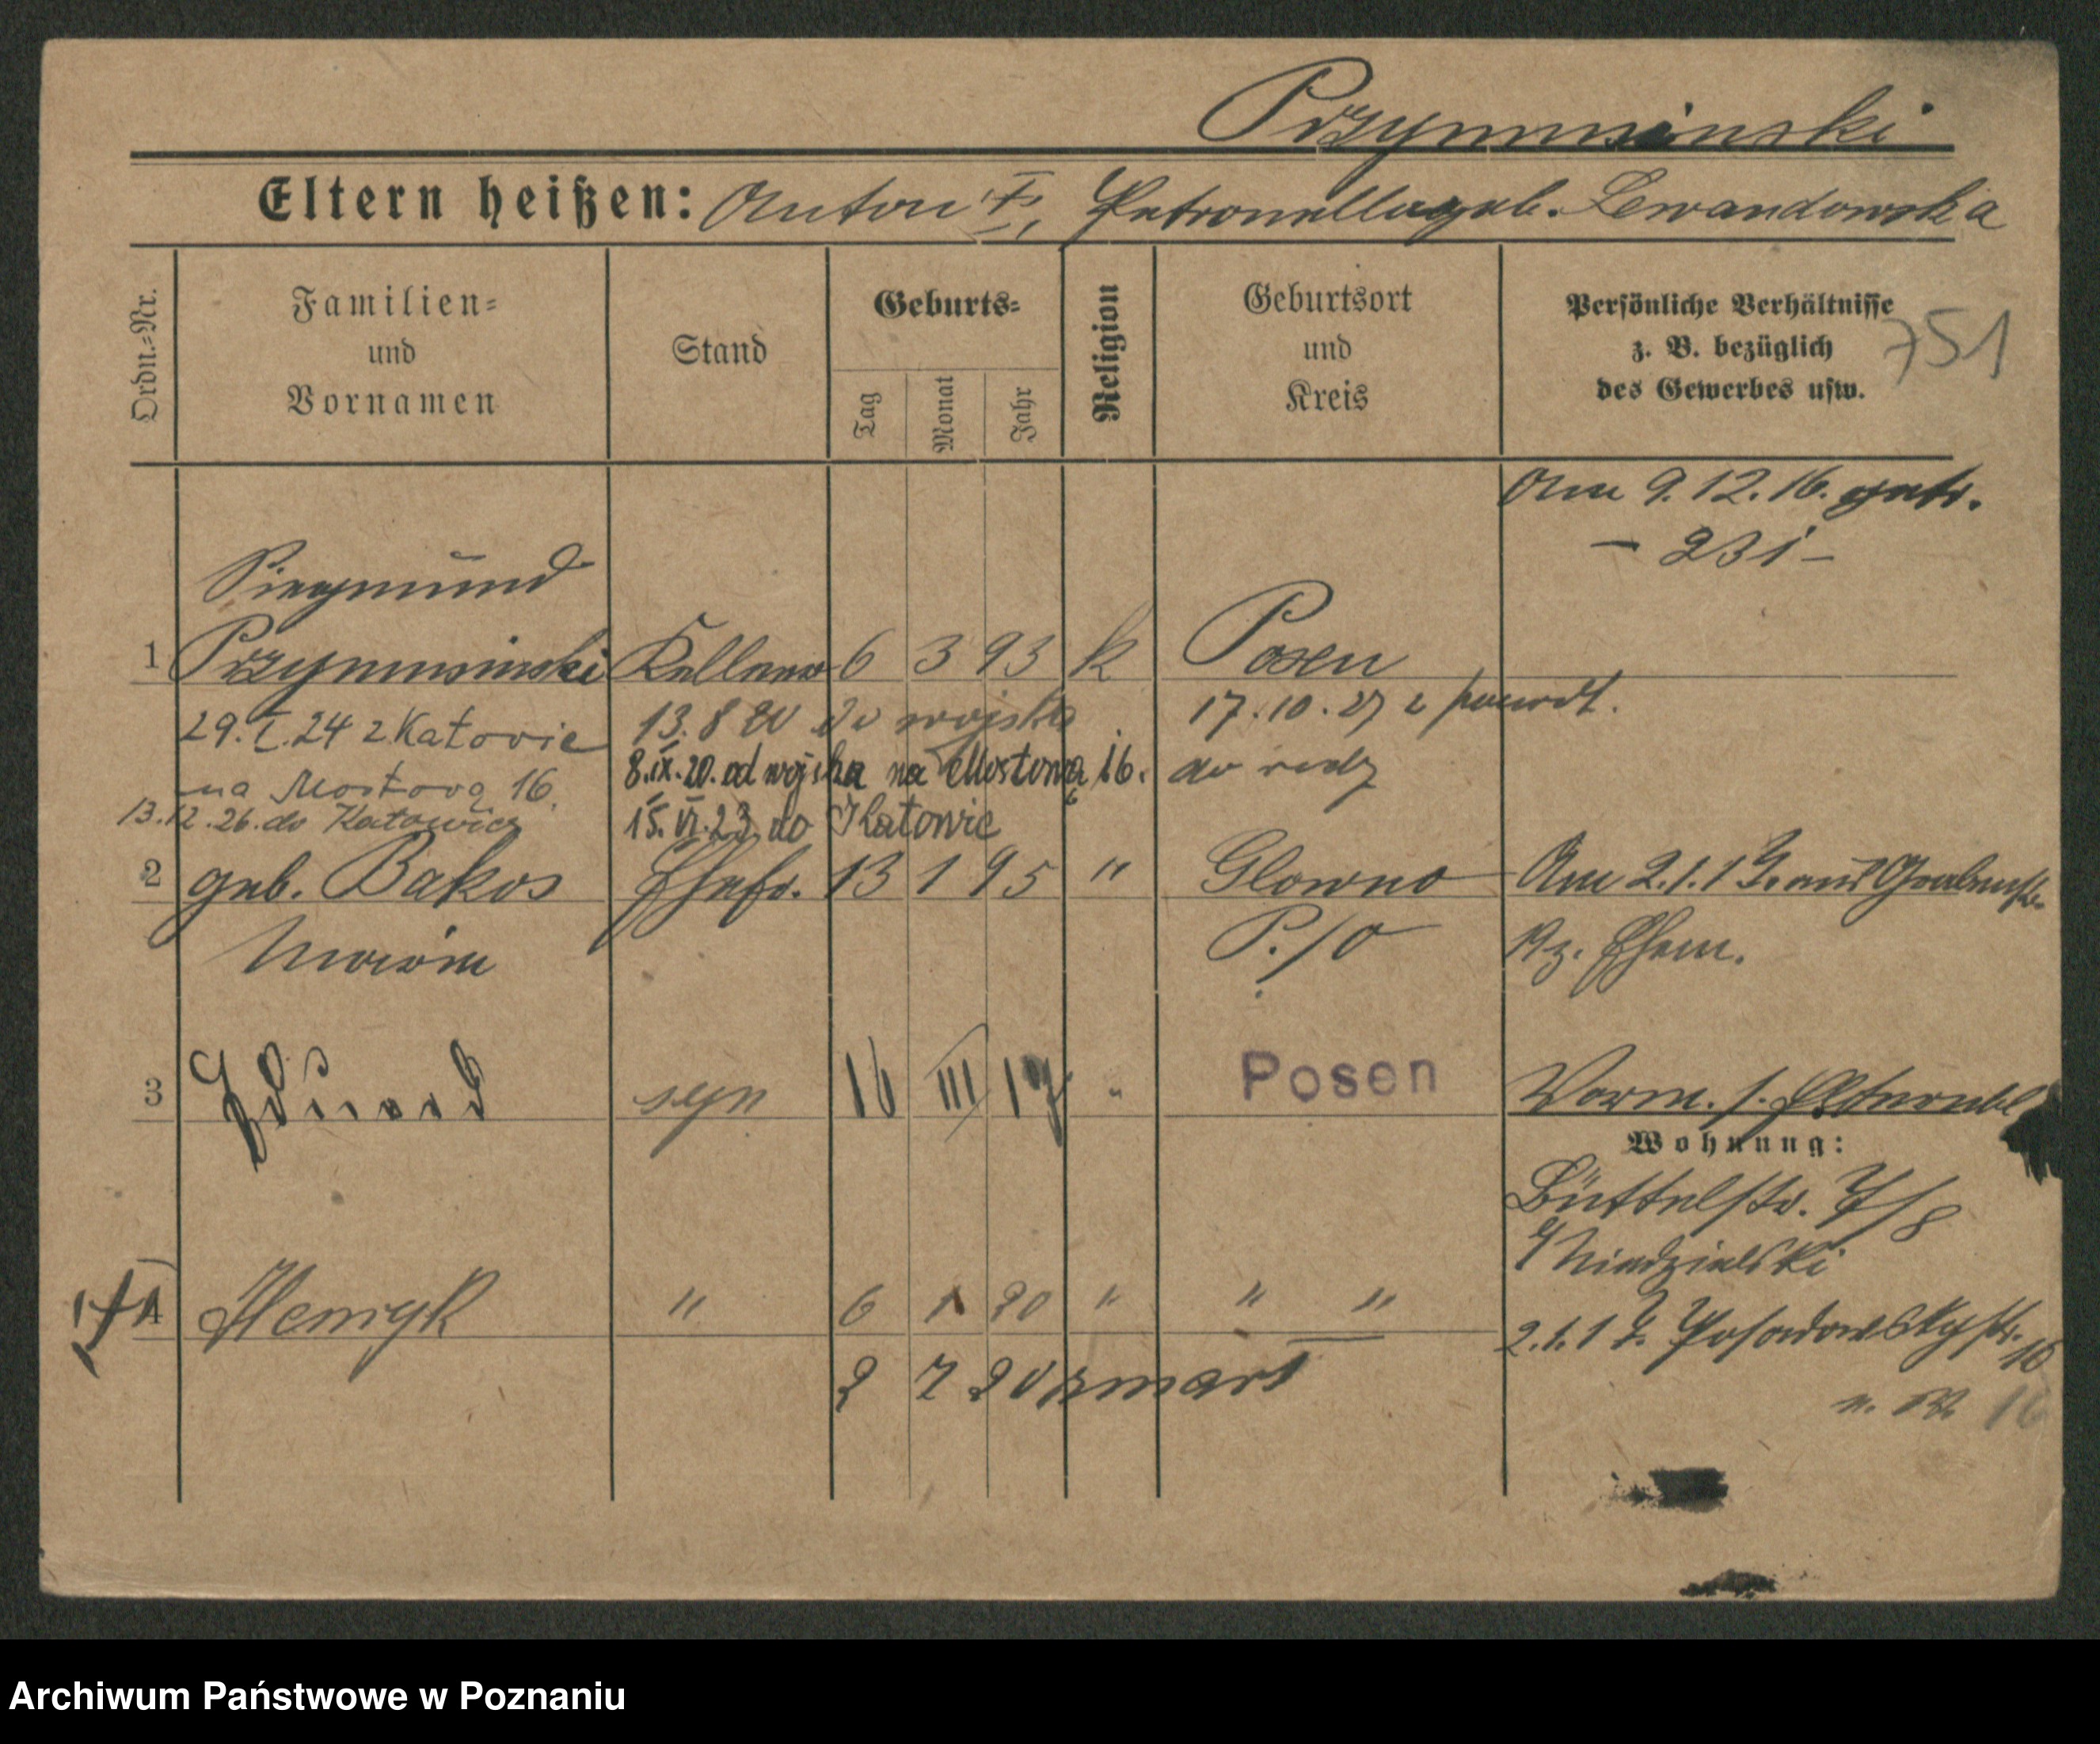 Przymusinski
Eltern heißen: Anton †, Petronella geb. Lewandowska
Ordn.-Nr.
Familien-
und
Vornamen
Stand
Geburts-
Tag
Monat
Jahr
Religion
Geburtsort
und
Kreis
Persönliche Verhältnisse
z. B. bezüglich
des Gewerbes usw.
751
Am 9.12.16. getr.
- 231 -
Siegmund
1 Przymusinski Kellner 6 3 93 k Posen
29.I.24 z Katowic
na Mostową 16.
13.12.26. do Katowic
13.8 20 do wojska
8.IX.20. od wojska na Mostową 16.
15.VI.23 do Katowic
17.10.27 z powrot.
do rodz
2 geb. Bakos Ehefr. 13 1 95 " Glowno Am 2.1.17. aus
Maria P./O Ehem.
3 Eduard syn 16 III 17 " Posen
Wohnung:
Büttelstr. 7/8
Niedzielski
4 Henryk " 6 1 20 " " "
2.1.17. Posadowskystr. 16
2 7 20 zmarł
16
Archiwum Państwowe w Poznaniu